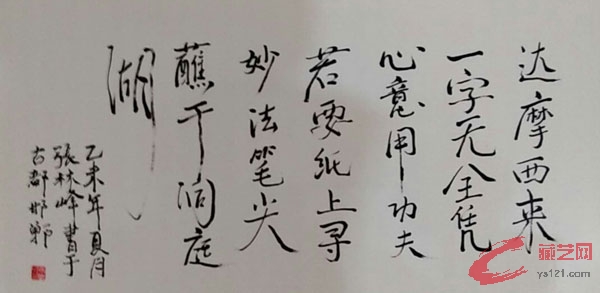 达摩西来
一字无全凭
心意用功夫
若要纸上寻
妙法笔尖
蘸干洞庭
湖
乙未年夏月
張林峰書于
古都邯鄲
藏艺网
ys121.com